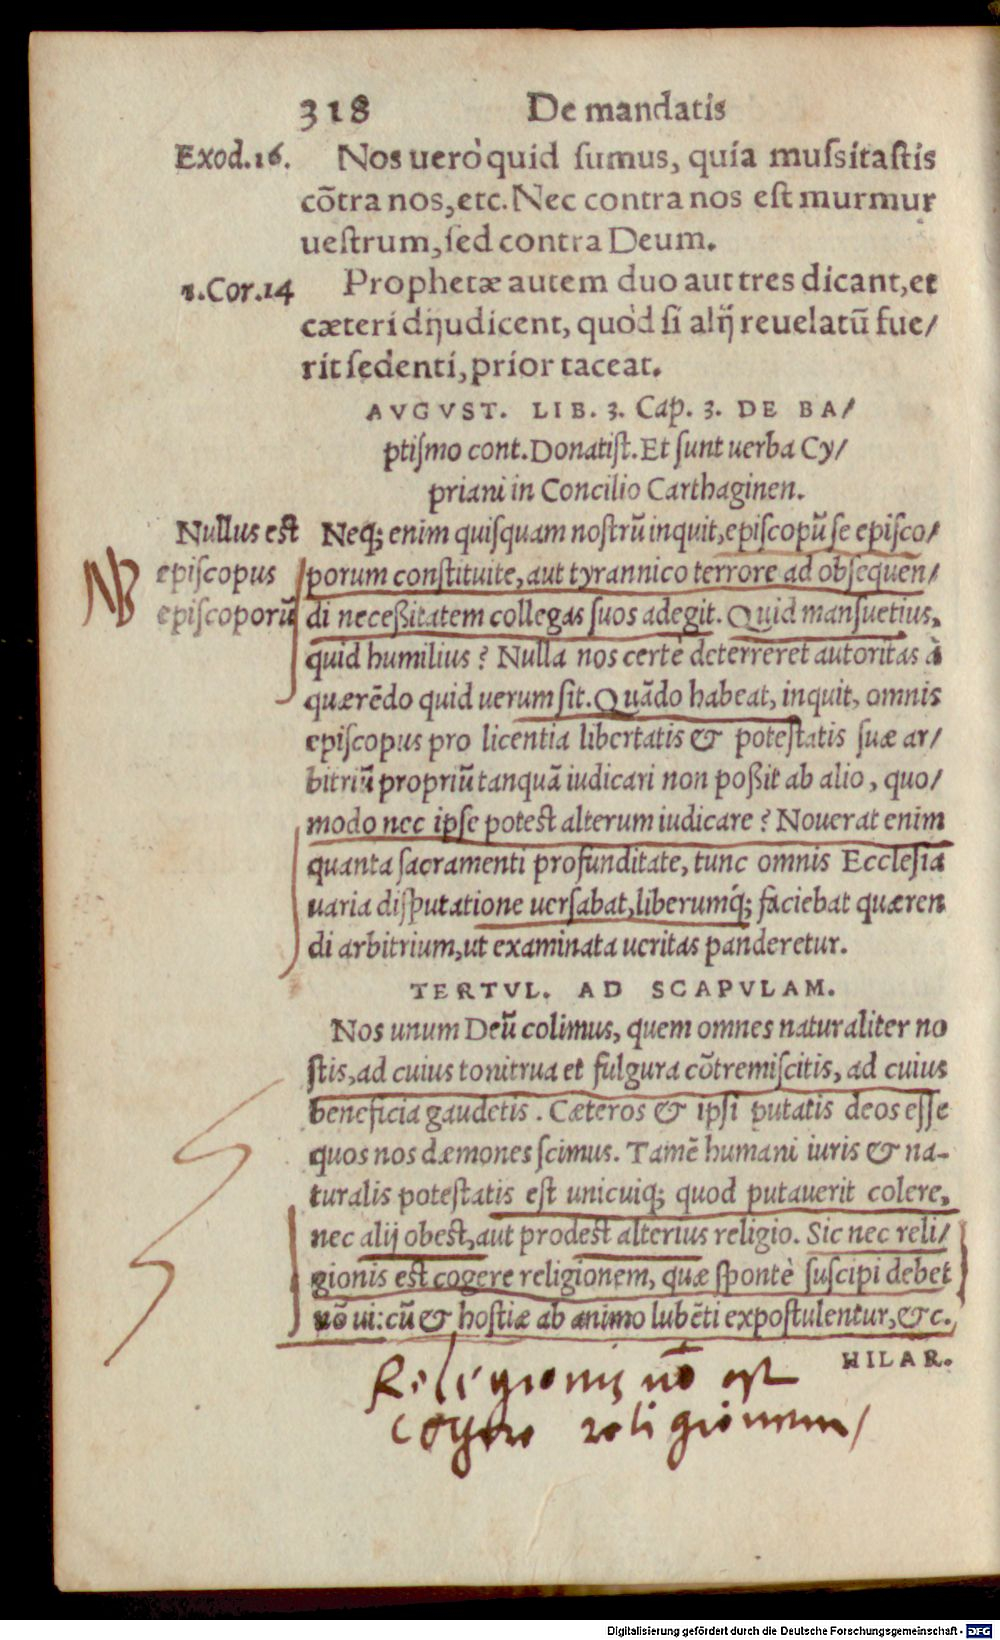 318 De mandatis
Exod.16. Nos uerò quid sumus, quia mussitastis
cõtra nos, etc. Nec contra nos est murmur
uestrum, sed contra Deum.
1.Cor.14 Prophetæ autem duo aut tres dicant, et
cæteri dijudicent, quòd si alij reuelatũ fue/
rit sedenti, prior taceat.
AVGVST. LIB. 3. Cap. 3. DE BA/
ptismo cont. Donatist. Et sunt uerba Cy/
priani in Concilio Carthaginen.
Nullus est
episcopus
episcoporũ
NB
Neq; enim quisquam nostrũ inquit, episcopũ se episco/
porum constituite, aut tyrannico terrore ad obsequen/
di neceßitatem collegas suos adegit. Quid mansuetius,
quid humilius? Nulla nos certè deterreret autoritas à
quærẽdo quid uerum sit. Quãdo habeat, inquit, omnis
episcopus pro licentia libertatis & potestatis suæ ar/
bitriũ propriũ tanquã iudicari non poßit ab alio, quo/
modo nec ipse potest alterum iudicare? Nouerat enim
quanta sacramenti profunditate, tunc omnis Ecclesia
uaria disputatione uersabat, liberumq́; faciebat quæren
di arbitrium, ut examinata ueritas panderetur.
TERTVL. AD SCAPVLAM.
Nos unum Deũ colimus, quem omnes naturaliter no
stis, ad cuius tonitrua et fulgura cõtremiscitis, ad cuius
beneficia gaudetis. Cæteros & ipsi putatis deos esse
quos nos dæmones scimus. Tamẽ humani iuris & na-
turalis potestatis est unicuiq; quod putauerit colere,
nec alij obest, aut prodest alterius religio. Sic nec reli/
gionis est cogere religionem, quæ spontè suscipi debet
nõ ui: cũ & hostiæ ab animo lubẽti expostulentur, &c.
HILAR.
Religionis nõ est
cogere religionem/
Digitalisierung gefördert durch die Deutsche Forschungsgemeinschaft - DFG